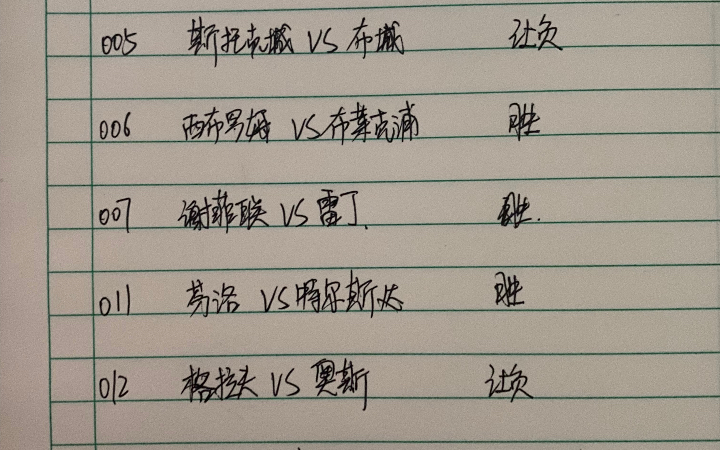 005 斯托克城 VS 布城 让负
006 西布罗姆 VS 布莱克浦 胜
007 谢菲联 VS 雷丁. 胜.
011 芬洛 VS 特尔斯达 胜
012 格拉夫 VS 奥斯 让负